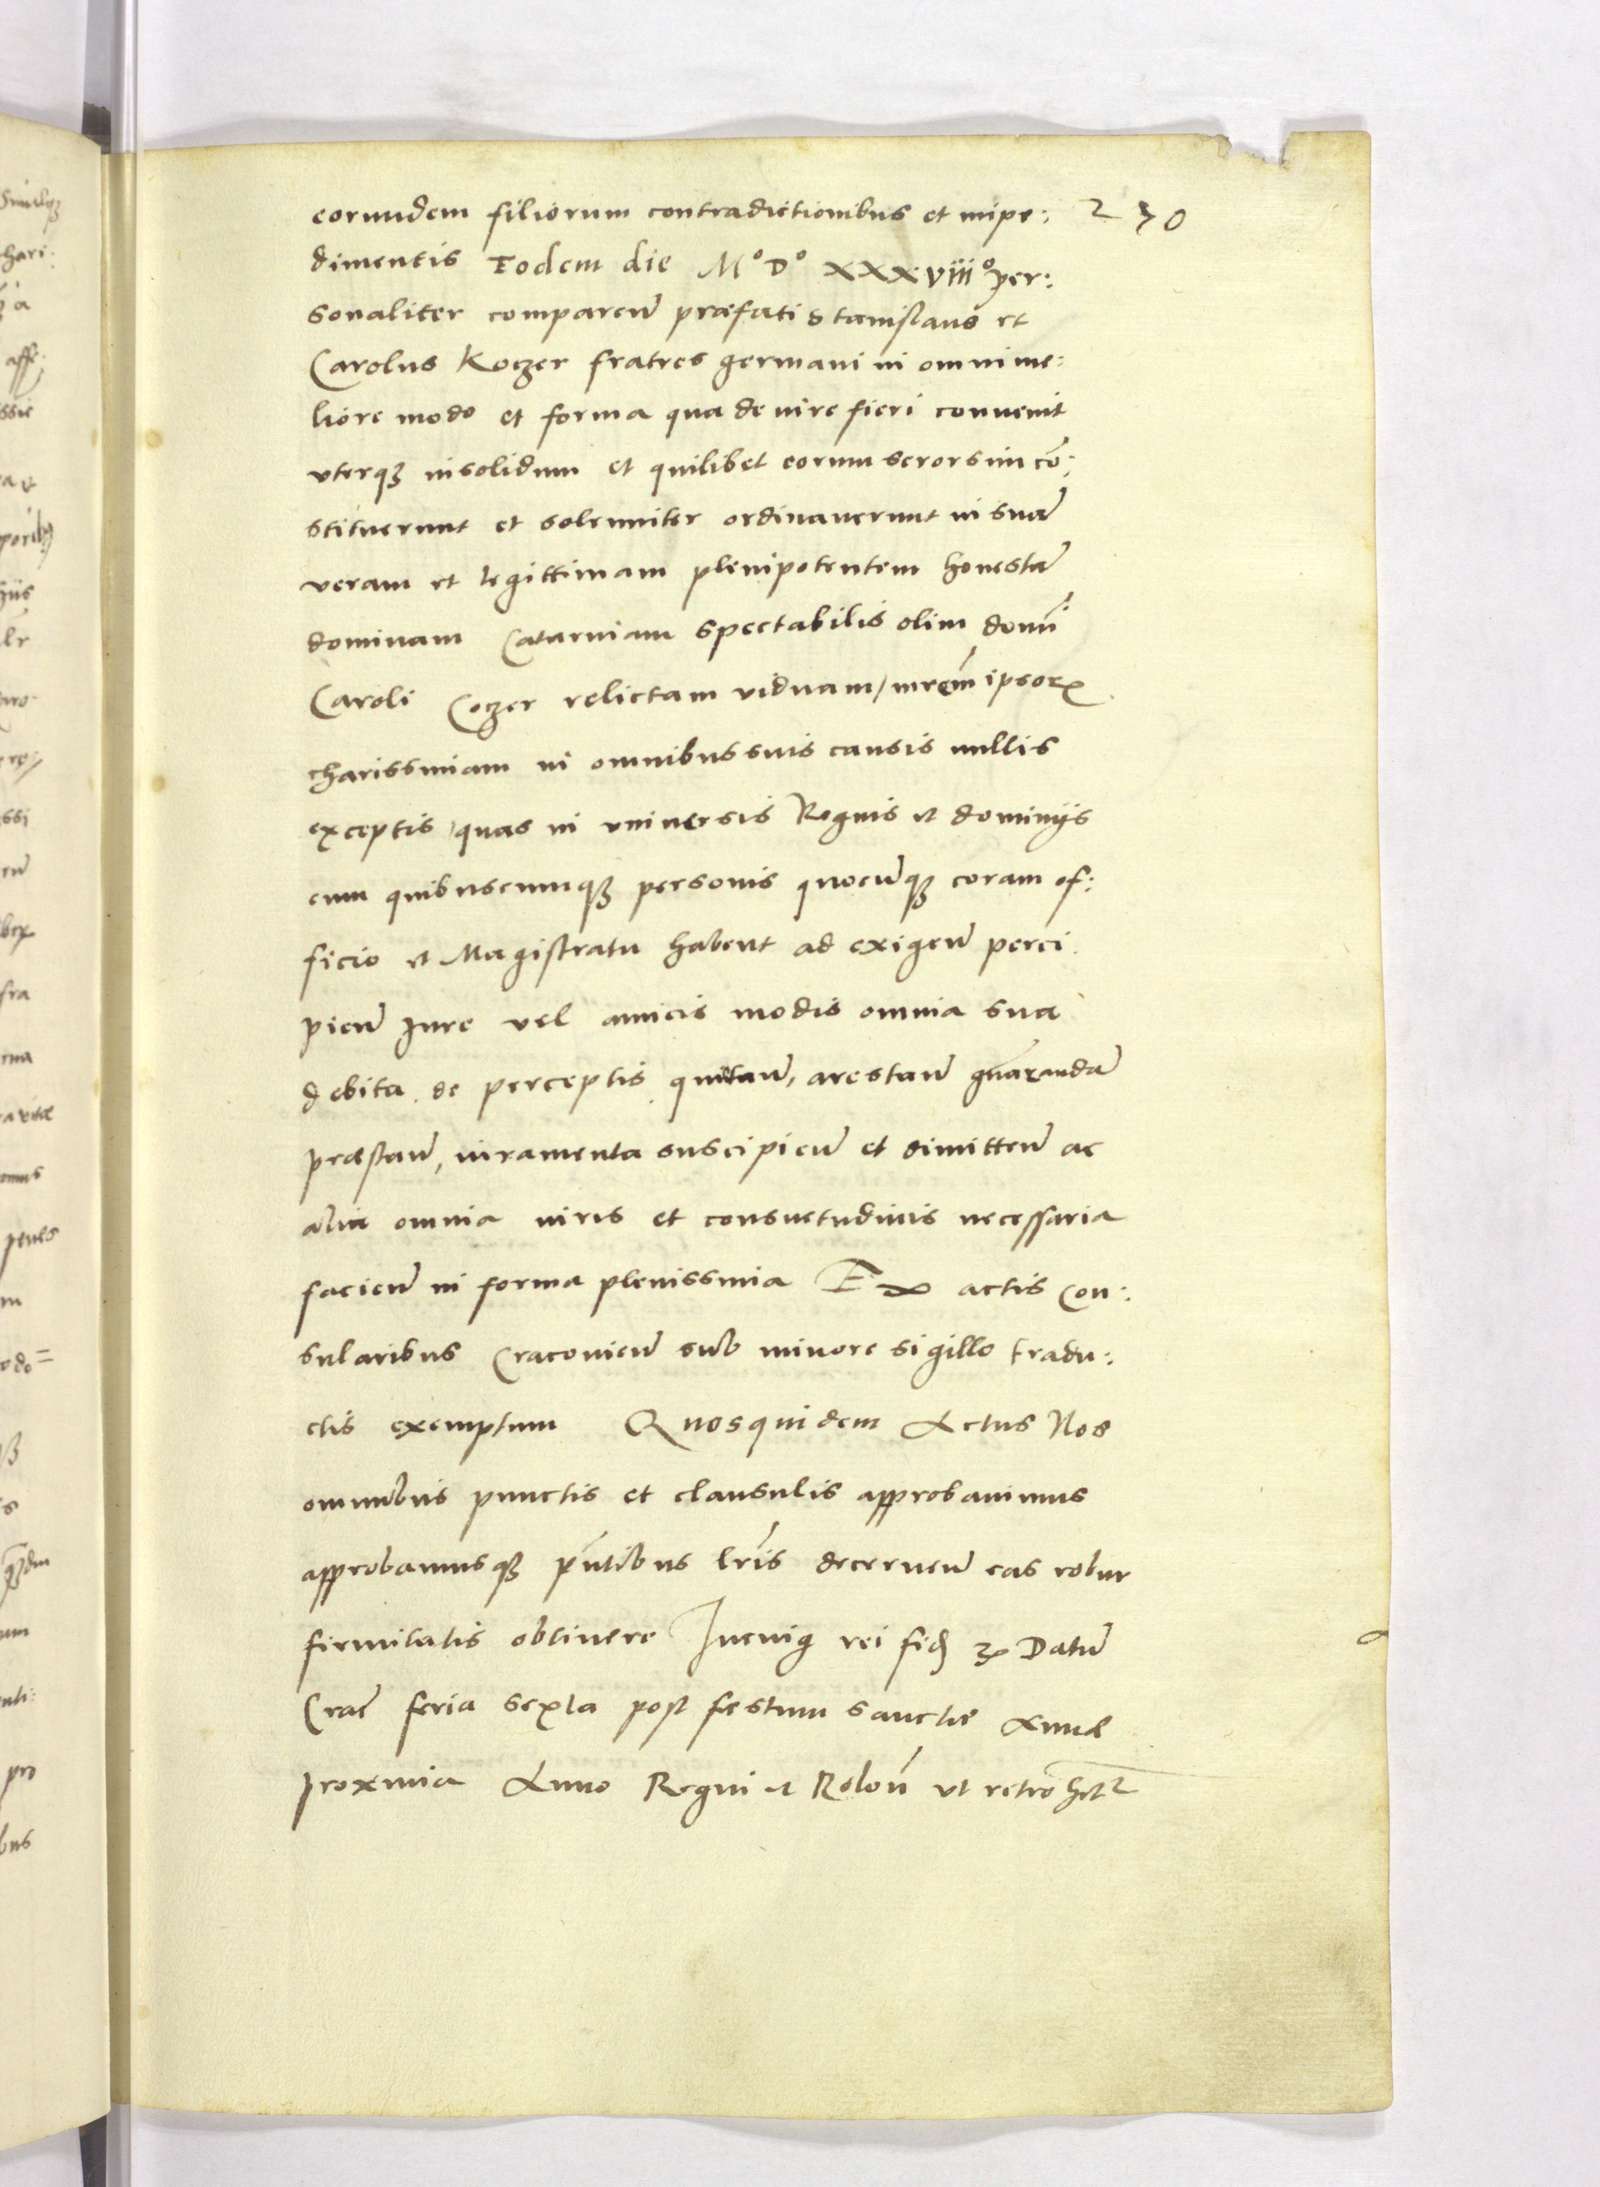 eorundem filiorum contradictionibus et impe: 230
dimentis Eodem die M° D° XXXVIII° per:
sonaliter comparen̄ præfati Stanislaus et
Carolus Koczer fratres germani in omni me:
liore modo et forma qua de iure fieri convenit
vterqꝫ insolidum et quilibet eorum seorsim cō:
stituerunt et solenniter ordinaverunt in suā
veram et legittimam plenipotentem honestā
dominam Catarinam spectabilis olim domī
Caroli Coczer relictam viduam, mr̄em ipsorꝝ
charissimam in omnibus suis causis nullis
exceptis quas in vniversis Regnis et dominijs
cum quibuscumqꝫ personis quocūqꝫ coram of:
ficio et Magistratu habent ad exigen̄ perci
pien̄ Iure vel amicis modis omnia sua
debita de perceptis quitan̄, arestan̄ gūarandā
præstan̄, iuramenta suscipien̄ et dimitten̄ ac
alia omnia iuris et consuetudinis necessaria
facien̄ in forma plenissima Ex actis Con:
sularibus Cracovien̄ sub minore sigillo tradu:
ctis exemptum Quosquidem Actus Nos
omnibus punctis et clausulis approbavimus
approbamusqꝫ pn̄tibus lr̄is decernen̄ eas robur
firmitatis obtinere Incuius rei fid Datū
Crac̄ feria sexta post festum sanctæ Annæ
proxima Anno Regni et Polon̄ vt retro